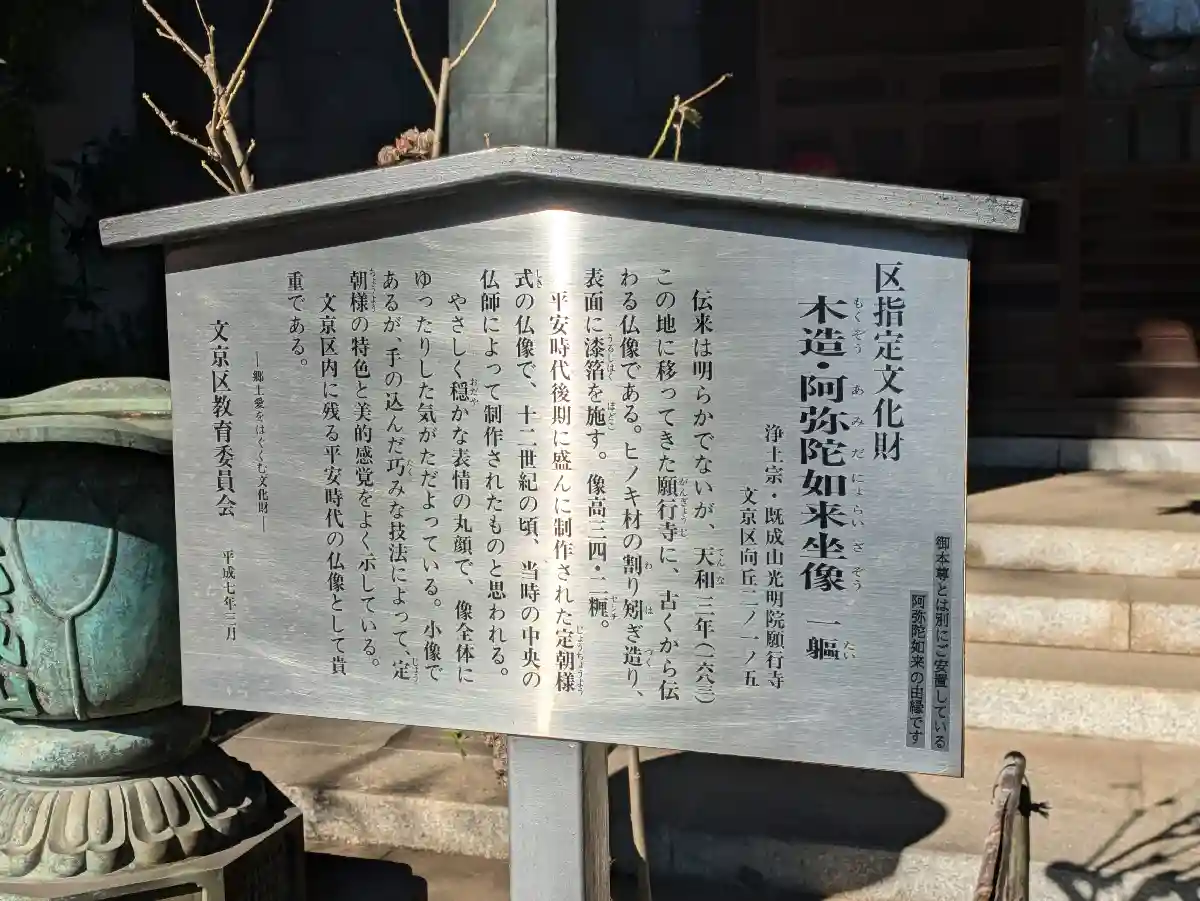 御本尊とは別にご安置している
阿弥陀如来の由縁です
区指定文化財
木造・阿弥陀如来坐像 一軀
もくぞう あみだにょらいざぞう たい
浄土宗・既成山光明院願行寺
文京区向丘二ノ一ノ五
伝来は明らかでないが、天和三年(一六八三)
てんな
この地に移ってきた願行寺に、古くから伝
がんぎょうじ
わる仏像である。ヒノキ材の割り矧ぎ造り、
わ は つく
表面に漆箔を施す。像高三四・二糎。
うるしはく ほどこ センチ
平安時代後期に盛んに制作された定朝様
じょうちょうよう
式の仏像で、十二世紀の頃、当時の中央の
しき
仏師によって制作されたものと思われる。
やさしく穏かな表情の丸顔で、像全体に
おだや
ゆったりした気がただよっている。小像で
あるが、手の込んだ巧みな技法によって、定
たく じょう
朝様の特色と美的感覚をよく示している。
ちょうよう
文京区内に残る平安時代の仏像として貴
重である。
―郷土愛をはぐくむ文化財―
文京区教育委員会 平成七年三月